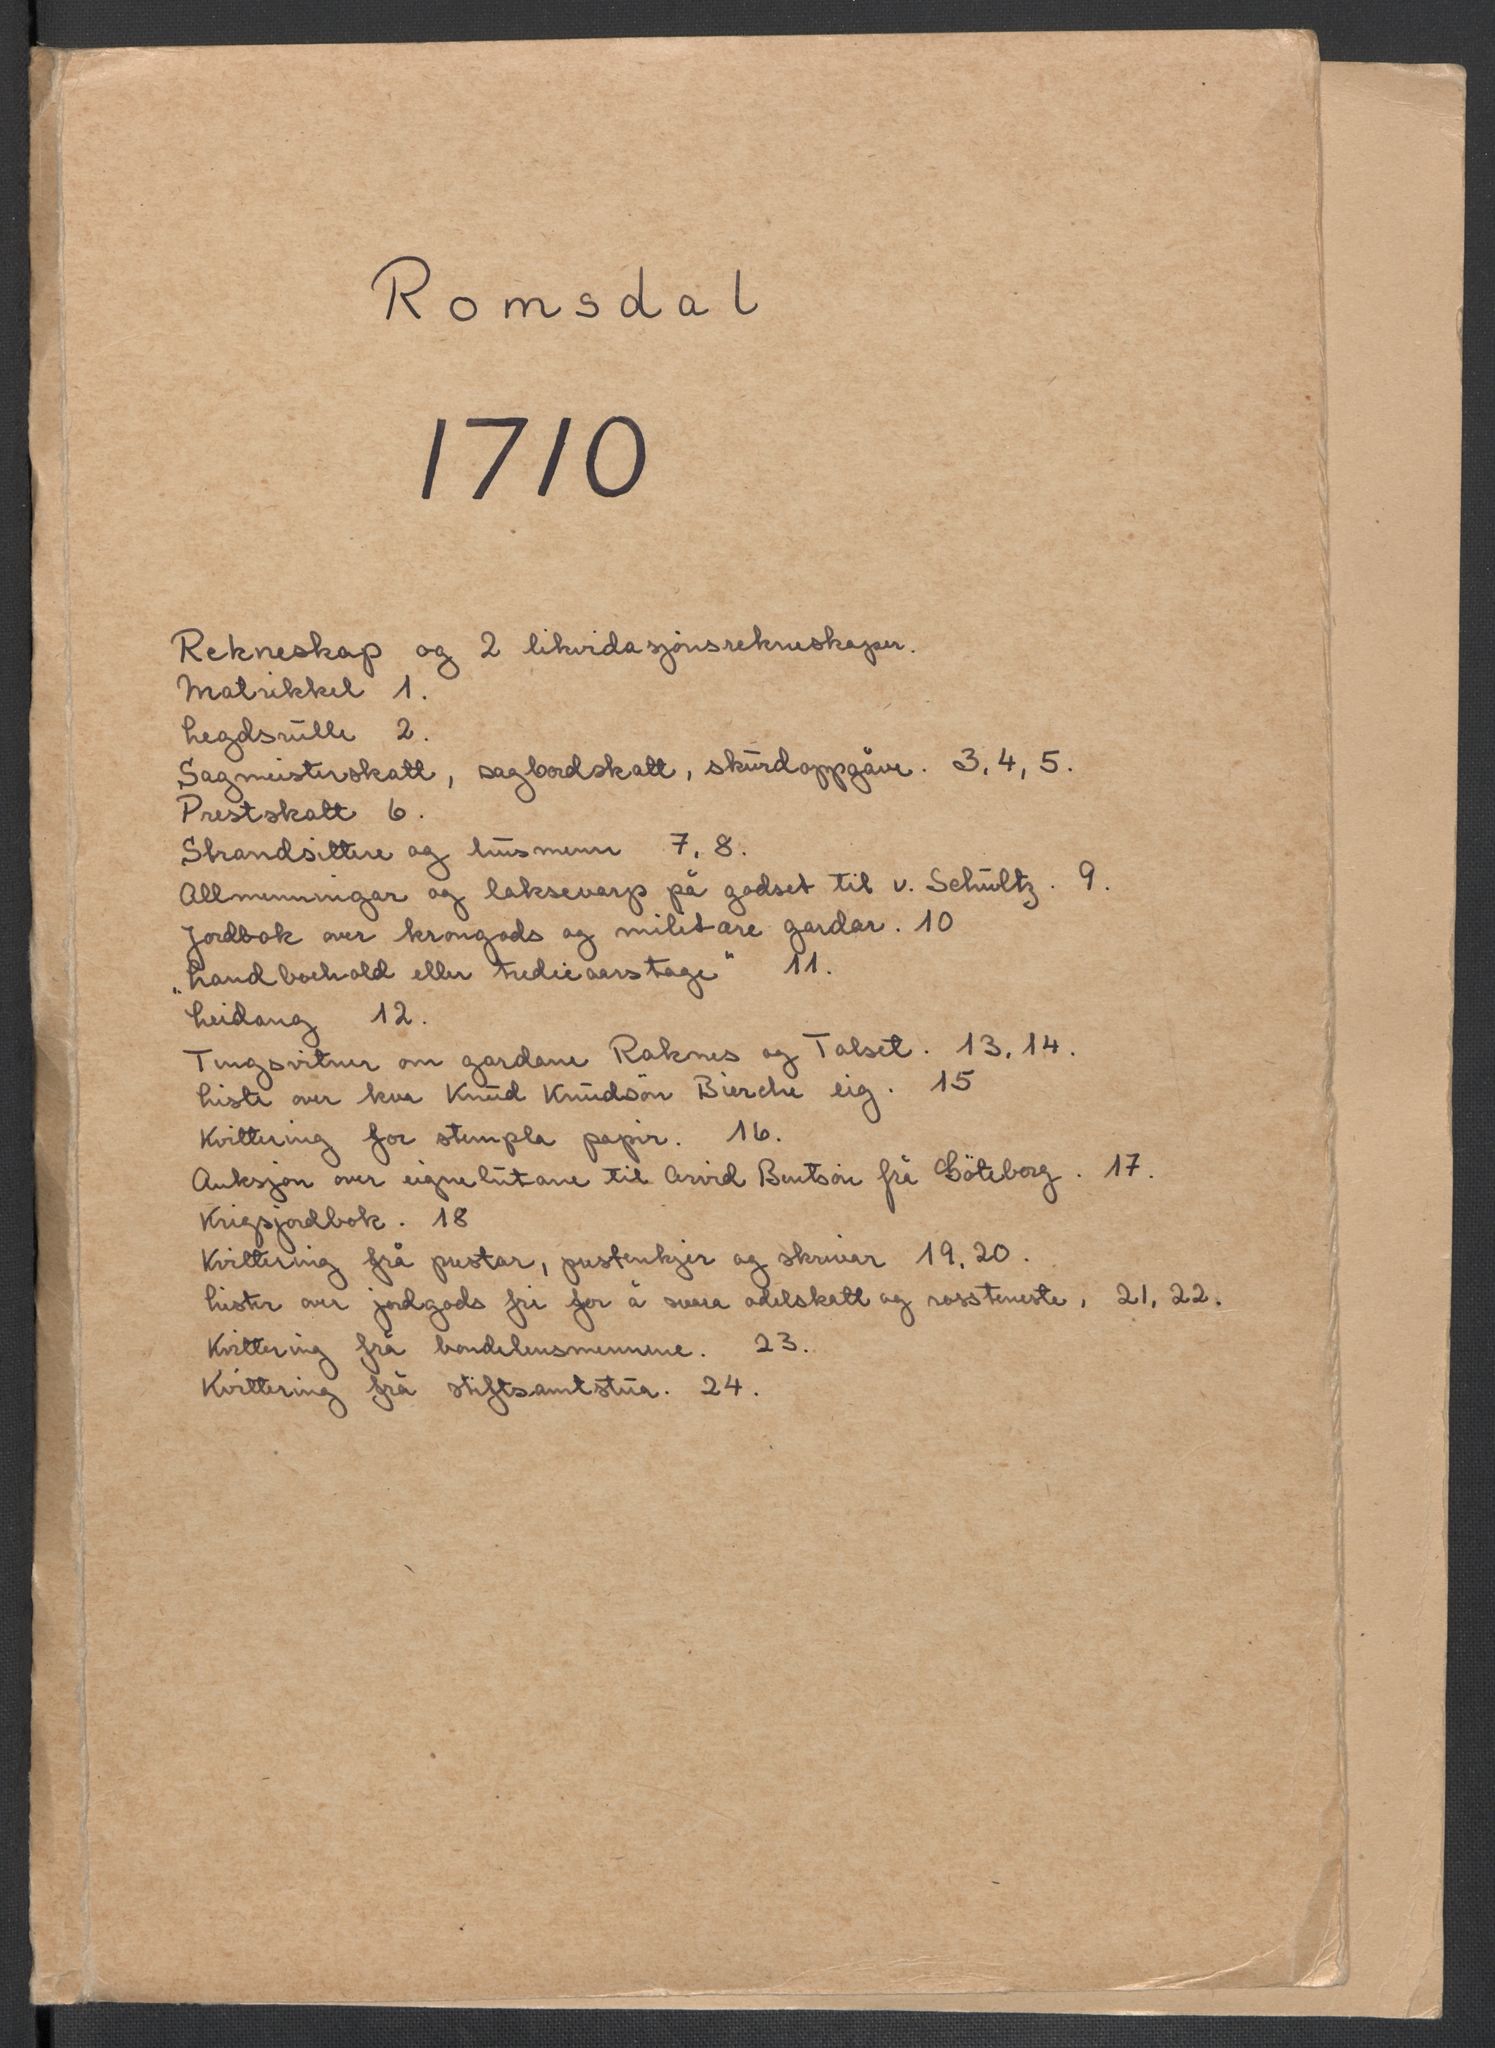 Romsdal
1710
Rekneskap og 2 likvidasjonsrekneskaper.
Matrikkel 1.
Legdsrulle 2.
Sagmeisterskatt, sagbordskatt, skurdoppgåve. 3, 4, 5.
Prestskatt 6.
Strandsittere og husmenn 7, 8.
Allmenningar og laksevarp på godset til v. Schultz. 9.
Jordbok over krongods og militære gardar. 10
„Landboehold eller tredieaarstage" 11.
Leidang 12.
Tingsvitner om gardane Raknes og Talset. 13, 14.
Liste over kva Knud Knudsøn Bierche eig. 15
Kvittering for stempla papir. 16.
Auksjon over eignelutane til Arvid Bentsøn frå Göteborg. 17.
Krigsjordbok. 18
Kvittering frå prestar, prestenkjer og skrivar 19, 20.
Lister over jordgods fri for å svara odelskatt og rossteneste, 21, 22.
Kvittering frå bondelensmennene. 23.
Kvittering frå stiftsamtstua. 24.